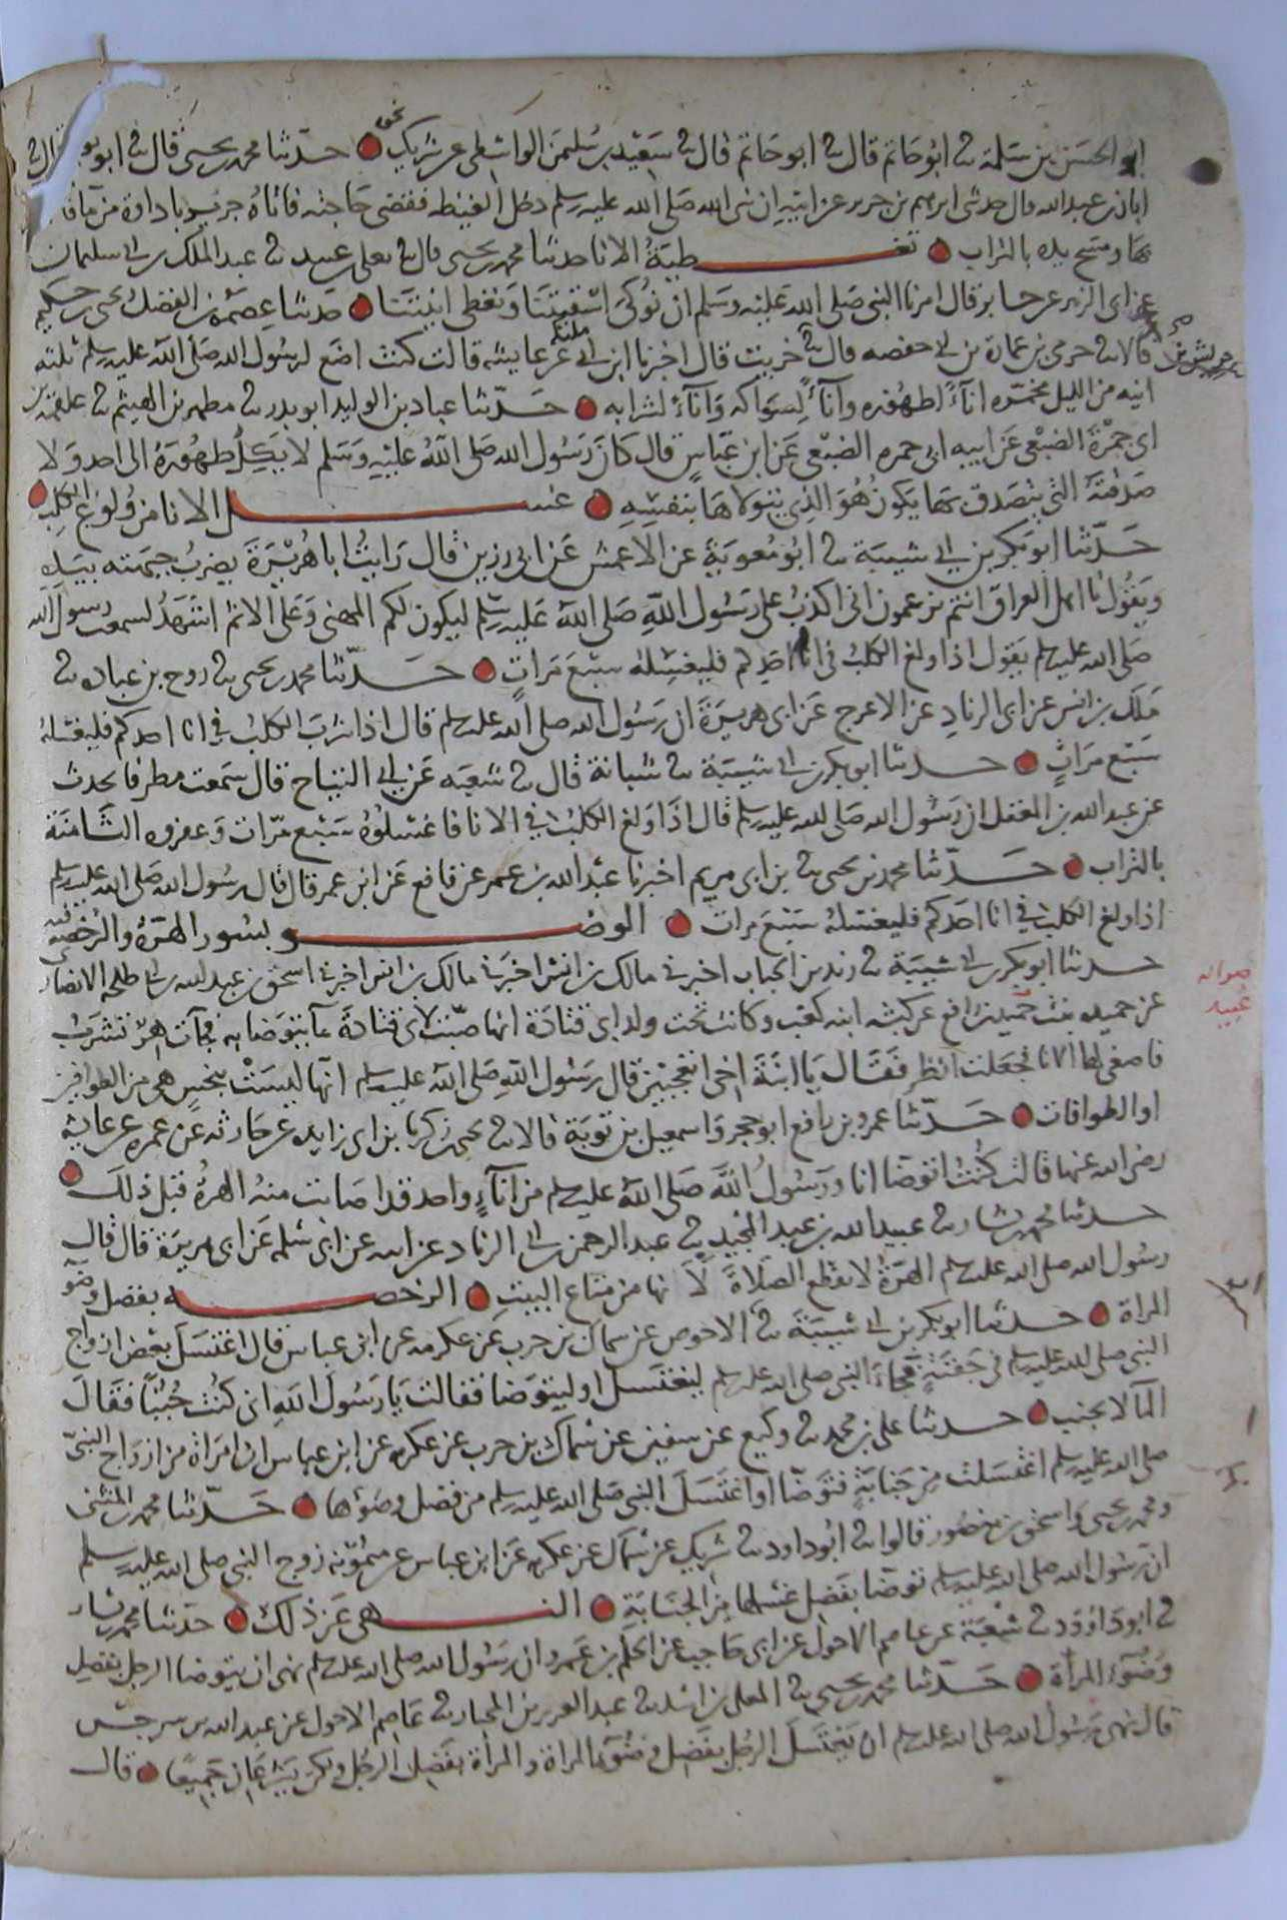 ابو الحسن بن سلمة ثنا ابو حاتم قال ثنا ابو حاتم قال ثنا سعيد بن سليمن الواسطي عن شريك نحوه حدثنا محمد بن يحيى قال ثنا ابو
ابان بن عبد الله قال حدثني ابرهيم بن جرير عن ابيه ان نبي الله صلى الله عليه وسلم دخل الغيضه فقضى حاجته فاتاه جرير باداوة من ما
بها ومسح يده بالتراب تغطية الانا حدثنا محمد بن يحيى قال ثنا يعلى بن عبيد ثنا عبد الملك بن ابي سليمان
عن ابي الزبير عن جابر قال امرنا النبي صلى الله عليه وسلم ان نوكي اسقيتنا ونغطي انيتنا حدثنا عصمة بن الفضل يحيى بن حكيم
قالا ثنا حرمي بن عمارة بن ابي حفصه قال ثنا خريت قال اخبرنا ابن ابي مليكة عن عايشه قالت كنت اضع لرسول الله صلى الله عليه وسلم ثلثه
انيه من الليل مخمره اناء لطهوره واناء لسواكه واناء لشرابه حدثنا عباد بن الوليد ابو بدر ثنا مطهر بن الهيثم ثنا علقمة بن
ابي جمرة الضبعي عن ابيه ابي جمره الضبعي عن ابن عباس قال كان رسول الله صلى الله عليه وسلم لا يكل طهوره الى احد ولا
صدقته التي يتصدق بها يكون هو الذي يتولاها بنفسه غسل الانا من ولوغ الكلب
حدثنا ابو بكر بن ابي شيبة ثنا ابو معوية عن الاعمش عن ابي رزين قال رايت ابا هريرة يضرب جبهته بيده
ويقول يا اهل العراق انتم تزعمون اني اكذب على رسول الله صلى الله عليه وسلم ليكون لكم المهنى وعلى الاثم اشهد لسمعت رسول الله
صلى الله عليه وسلم يقول اذا ولغ الكلب في انا احدكم فليغسله سبع مرات حدثنا محمد بن يحيى ثنا روح بن عباده ثنا
ملك بن انس عن ابي الزناد عن الاعرج عن ابي هريرة ان رسول الله صلى الله عليه وسلم قال اذا شرب الكلب في انا احدكم فليغسله
سبع مرات حدثنا ابو بكر بن ابي شيبة ثنا شبابة قال ثنا شعبه عن ابي التياح قال سمعت مطرفا يحدث
عن عبد الله بن المغفل ان رسول الله صلى الله عليه وسلم قال اذا ولغ الكلب في الانا فاغسلوه سبع مرات وعفروه الثامنة
بالتراب حدثنا محمد بن يحيى ثنا بن ابي مريم اخبرنا عبد الله بن عمر عن نافع عن ابن عمر قال قال رسول الله صلى الله عليه وسلم
اذا ولغ الكلب في انا احدكم فليغسله سبع مرات الوضو بسور الهرة والرخصة فيه
حدثنا ابو بكر بن ابي شيبة ثنا زيد بن الحباب اخبرني مالك بن انس اخبرني مالك بن انس اخبرني اسحق بن عبد الله بن ابي طلحه الانصاري
عن حميده بنت حميد بن رافع عن كبشه ابنه كعب وكانت تحت ولد ابي قتادة انها صبت لابي قتادة ما يتوضا به فجات هر تشرب
فاصغى لها الانا فجعلت انظر فقال يا ابنة اخي اتعجبين قال رسول الله صلى الله عليه وسلم انها ليست بنجس هي من الطوافين
او الطوافات حدثنا عمرو بن رافع ابو حجر واسمعيل بن توبة قالا ثنا يحيى بن زكريا بن ابي زايده عن حارثه عن عمره عن عايشه
رضي الله عنها قالت كنت اتوضا انا ورسول الله صلى الله عليه وسلم من اناء واحد قد اصابت منه الهرة قبل ذلك
حدثنا محمد بن بشار ثنا عبيد الله بن عبد المجيد ثنا عبد الرحمن بن ابي الزناد عن ابيه عن ابي سلمه عن ابي هريرة قال قال
رسول الله صلى الله عليه وسلم الهرة لا تقطع الصلاة لانها من متاع البيت الرخصه بفضل وضو
المراة حدثنا ابو بكر بن ابي شيبة ثنا الاحوص عن سماك بن حرب عن عكرمه عن ابن عباس قال اغتسل بعض ازواج
النبي صلى الله عليه وسلم في جفنة فجاء النبي صلى الله عليه وسلم ليغتسل او ليتوضا فقالت يا رسول الله اني كنت جنبا فقال
الما لا يجنب حدثنا علي بن محمد ثنا وكيع عن سفين عن سماك بن حرب عن عكرمه عن ابن عباس ان امراة من ازواج النبي
صلى الله عليه وسلم اغتسلت من جنابة فتوضا او اغتسل النبي صلى الله عليه وسلم من فضل وضوءها حدثنا محمد بن المثنى
ومحمد بن يحيى واسحق بن منصور قالوا ثنا ابو داود ثنا شريك عن سماك عن عكرمه عن ابن عباس عن ميمونه زوج النبي صلى الله عليه وسلم
ان رسول الله صلى الله عليه وسلم توضا بفضل غسلها من الجنابة النهي عن ذلك حدثنا محمد بن بشار
ثنا ابو داوود ثنا شعبة عن عاصم الاحول عن ابي حاجب عن الحكم بن عمرو ان رسول الله صلى الله عليه وسلم نهى ان يتوضا الرجل بفضل
وضوء المرأة حدثنا محمد بن يحيى ثنا المعلى بن اسد ثنا عبد العزيز بن المختار ثنا عاصم الاحول عن عبد الله بن سرجس
قال نهى رسول الله صلى الله عليه وسلم ان يغتسل الرجل بفضل وضوء المراة والمرأة بفضل الرجل ولكن يشرعان جميعا قال
صوابه
عبيد